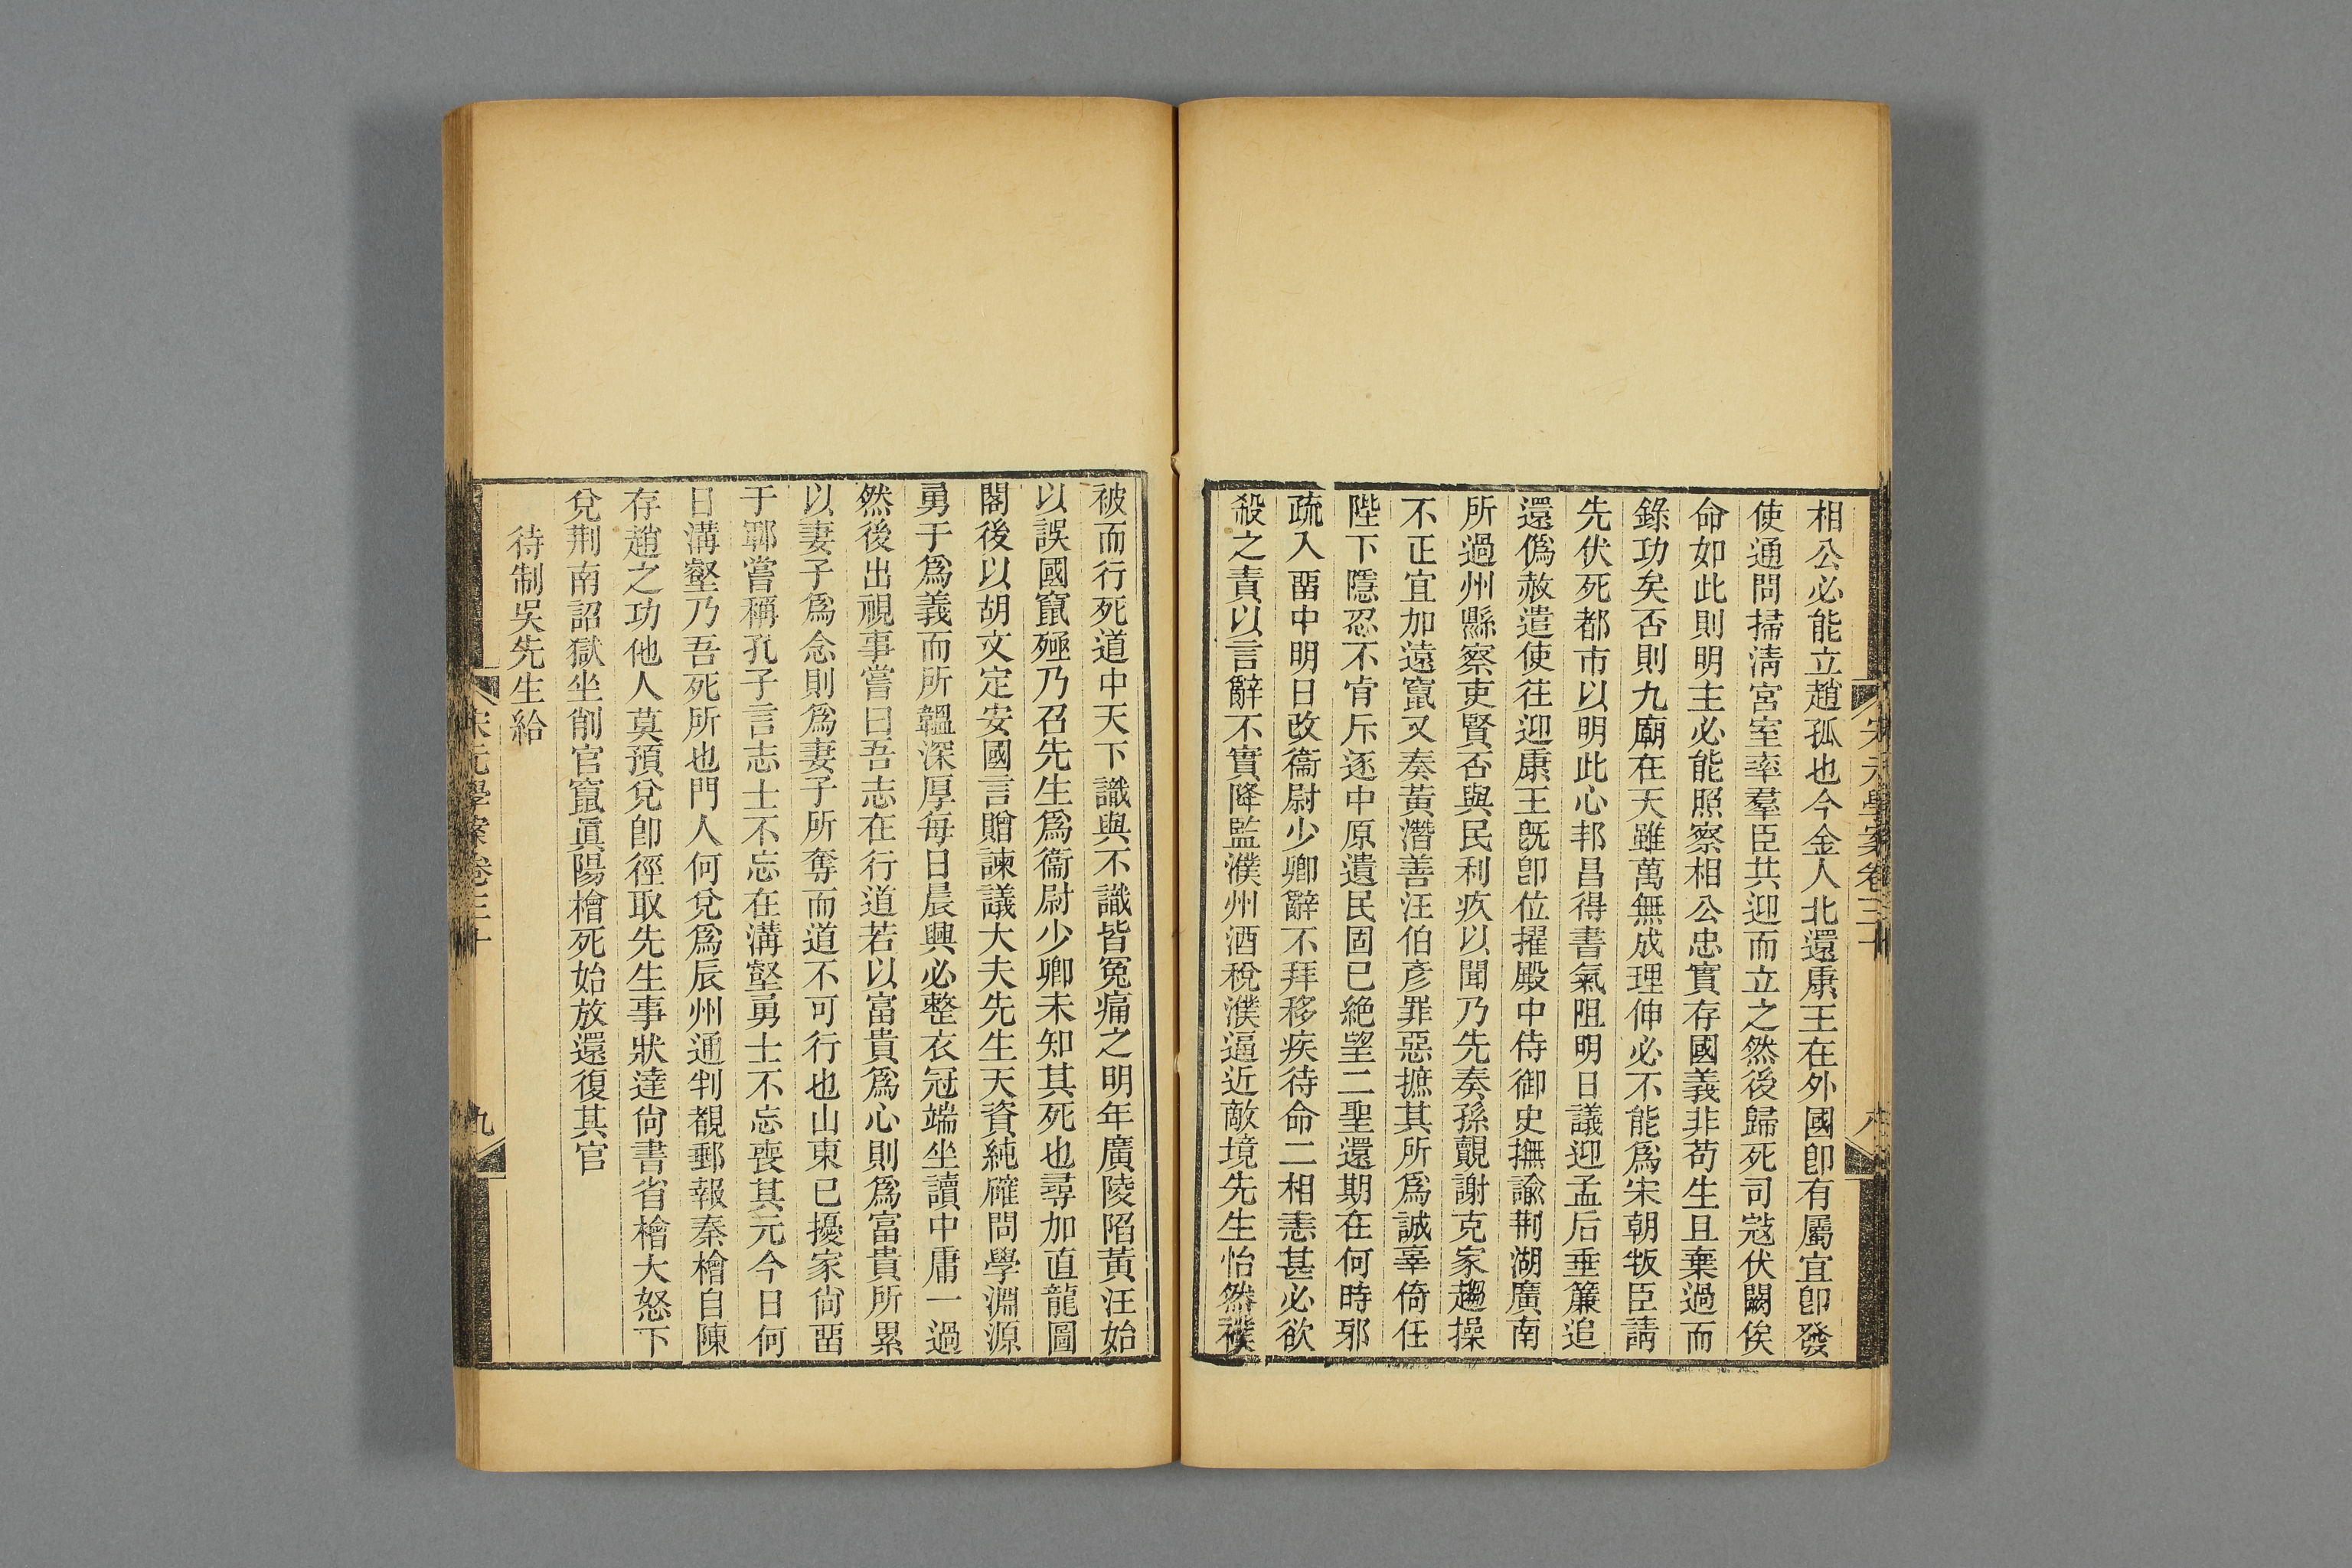 宋元學案卷三十
八
相公必能立趙孤也今金人北還康王在外國卽有屬宜卽發
使通問掃淸宮室率羣臣共迎而立之然後歸死司𡨥伏闕俟
命如此則明主必能照察相公忠實存國義非苟生且棄過而
錄功矣否則九廟在天雖萬無成理伸必不能爲宋朝叛臣請
先伏死都市以明此心邦昌得書氣阻明日議迎孟后垂簾追
還僞赦遣使往迎康王旣卽位擢殿中侍御史撫諭荆湖廣南
所過州縣察吏賢否與民利疚以聞乃先奏孫覿謝克家趨操
不正宜加遠竄又奏黃潛善汪伯彥罪惡摭其所爲誠辜倚任
陛下隱忍不肯斥逐中原遺民固已絶望二聖還期在何時邪
疏入畱中明日改衞尉少卿辭不拜移疾待命二相恚甚必欲
殺之責以言辭不實降監濮州酒稅濮逼近敵境先生怡然襆
被而行死道中天下識與不識皆冤痛之明年廣陵陷黃汪始
以誤國竄殛乃召先生爲衞尉少卿未知其死也尋加直龍圖
閣後以胡文定安國言贈諫議大夫先生天資純確問學淵源
勇于爲義而所韞深厚每日晨興必整衣冠端坐讀中庸一過
然後出視事嘗曰吾志在行道若以富貴爲心則爲富貴所累
以妻子爲念則爲妻子所奪而道不可行也山東已擾家尙畱
于鄆嘗稱孔子言志士不忘在溝壑勇士不忘喪其元今日何
日溝壑乃吾死所也門人何兌爲辰州通判覩郵報秦檜自陳
存趙之功他人莫預兌卽徑取先生事狀達尙書省檜大怒下
兌荆南詔獄坐削官竄眞陽檜死始放還復其官
待制吳先生給
宋元學案卷三十
九